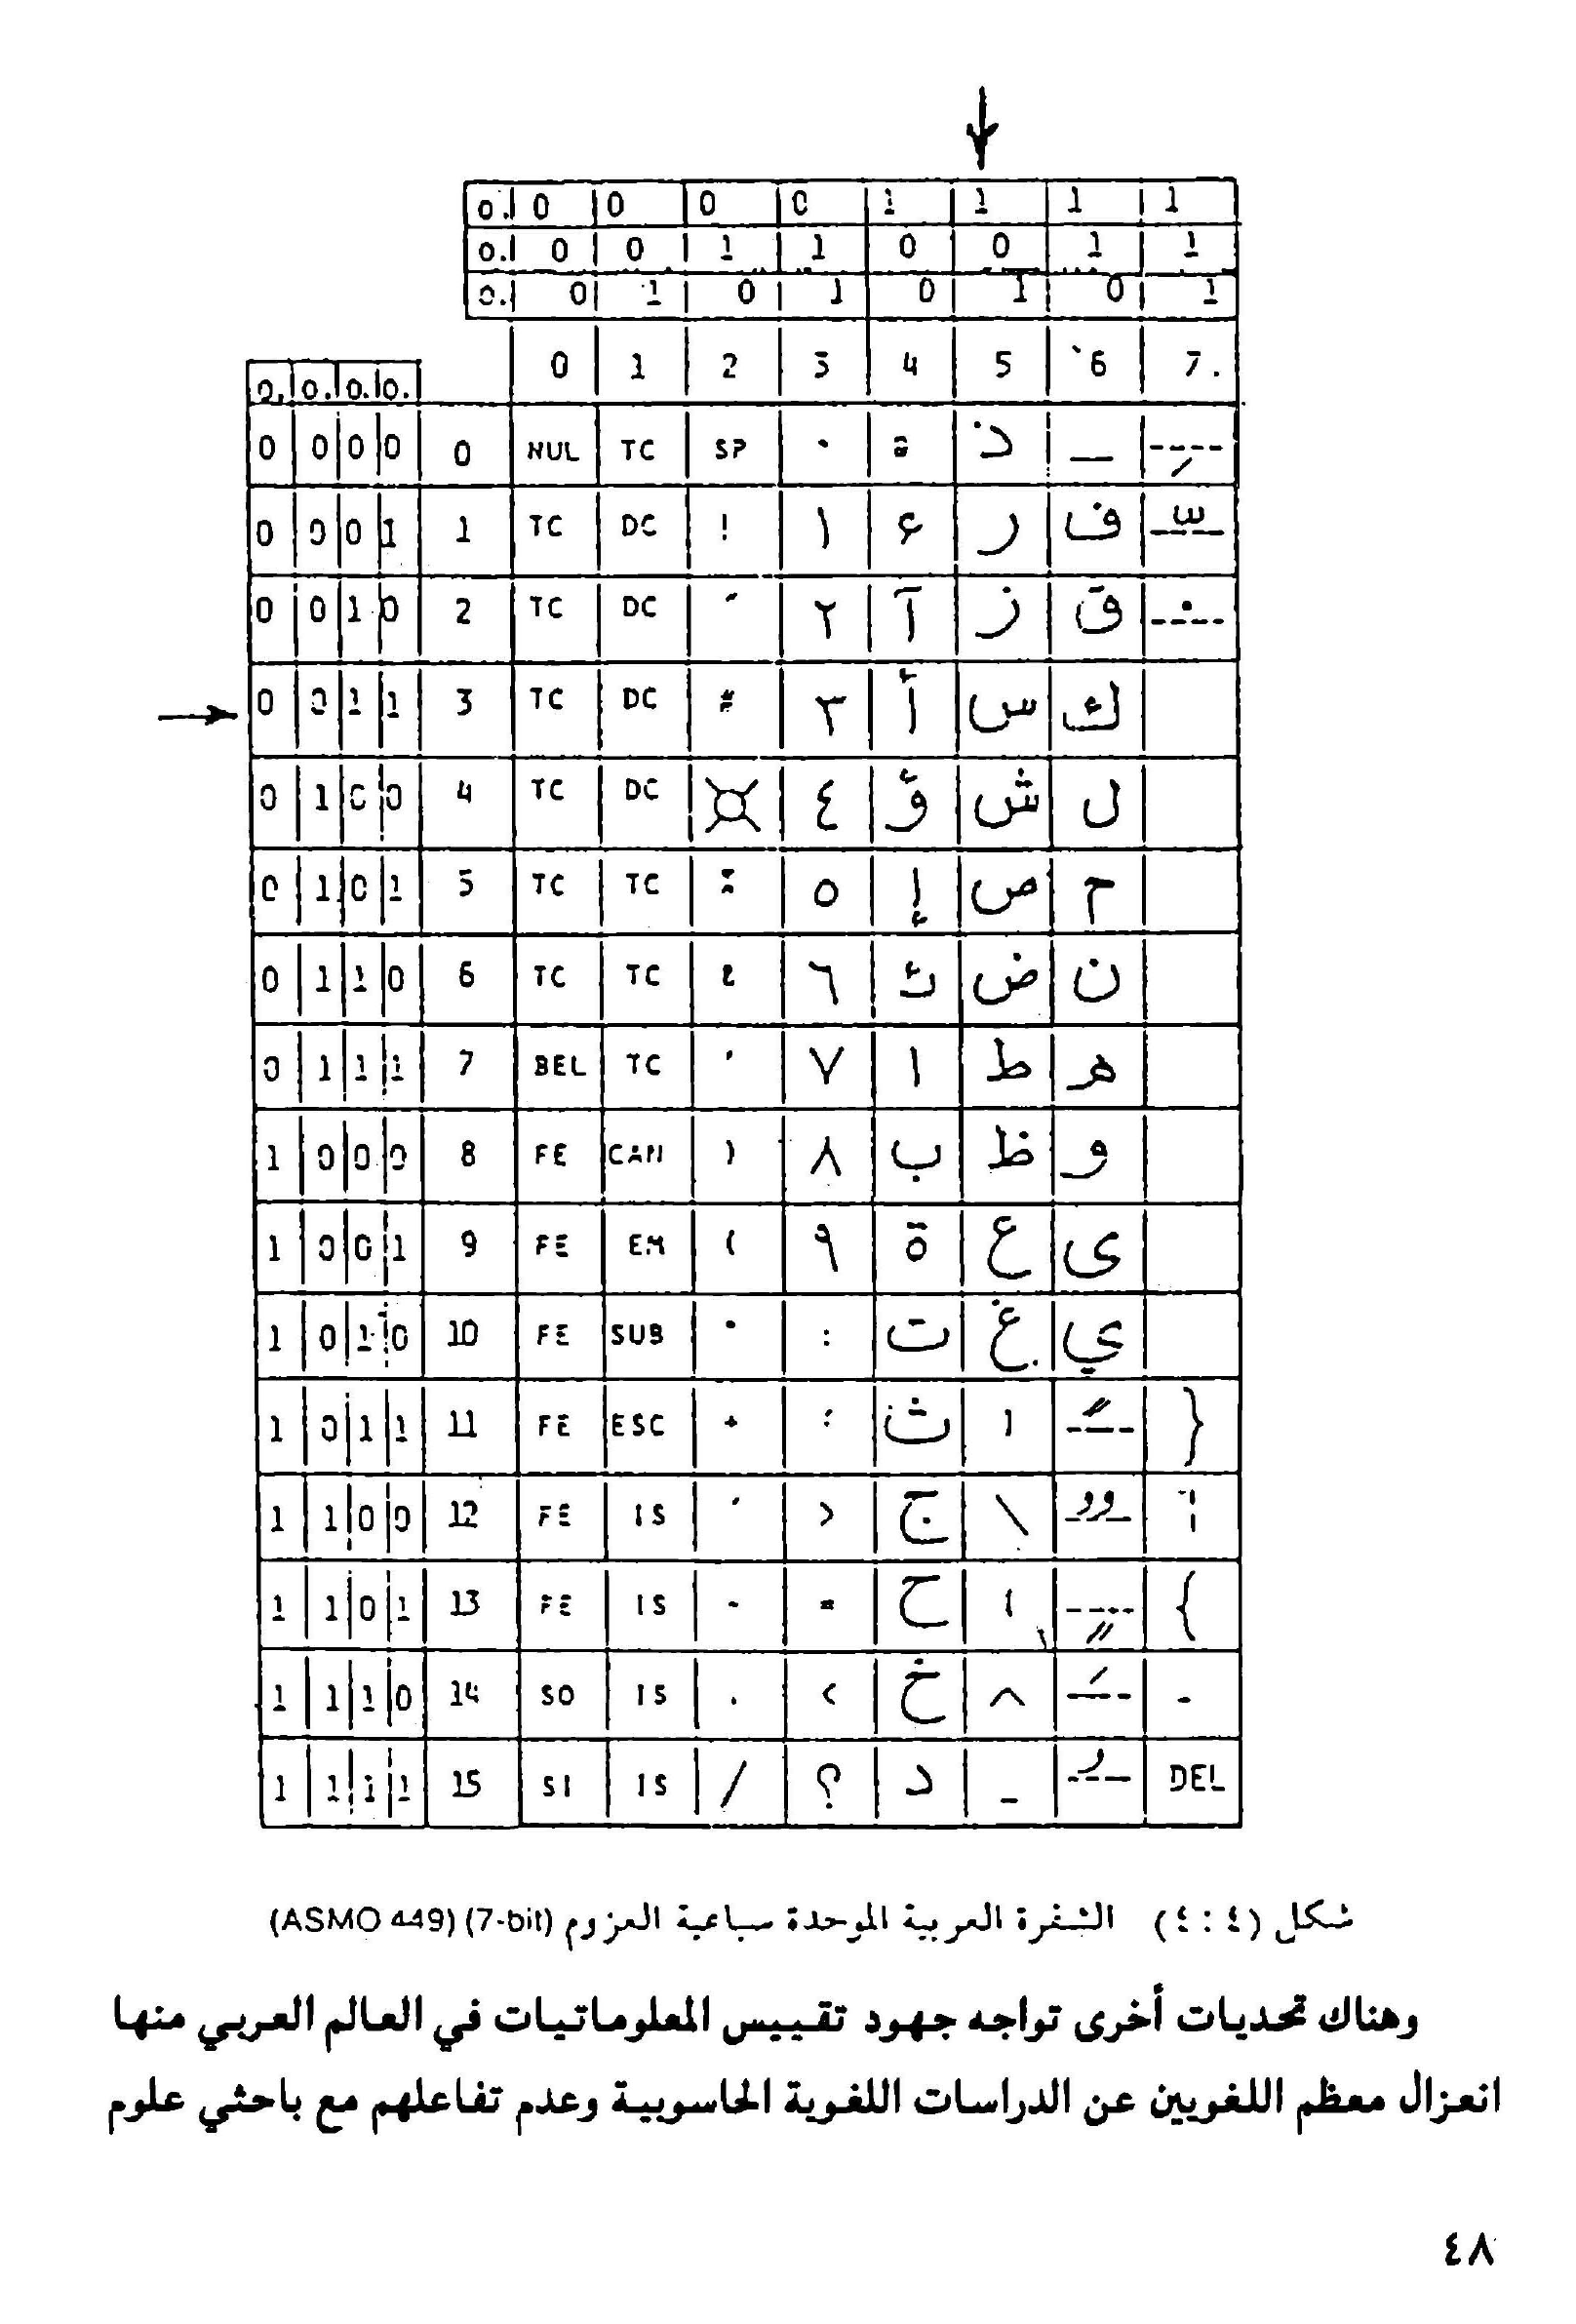 0. 0 0 0 0 1 1 1 1
0. 0 0 1 1 0 0 1 1
0. 0 1 0 1 0 1 0 1
0 1 2 3 4 5 6 7
0. 0. 0. 0.
0 0 0 0 0 NUL TC SP ٠ ذ ـ
0 0 0 1 1 TC DC ! ١ ء ر ف ـّ
0 0 1 0 2 TC DC ٢ آ ز ق ـْ
0 0 1 1 3 TC DC # ٣ أ س ك
0 1 0 0 4 TC DC ¤ ٤ ؤ ش ل
0 1 0 1 5 TC TC ٥ إ ص م
0 1 1 0 6 TC TC ٦ ئ ض ن
0 1 1 1 7 BEL TC ' ٧ ا ط ه
1 0 0 0 8 FE CAN ) ٨ ب ظ و
1 0 0 1 9 FE EM ( ٩ ة ع ى
1 0 1 0 10 FE SUB : ت غ ي
1 0 1 1 11 FE ESC + ؛ ث ـً }
1 1 0 0 12 FE IS > ج \ ـٌ
1 1 0 1 13 FE IS - = ح ـٍ {
1 1 1 0 14 SO IS . < خ ^ ـَ
1 1 1 1 15 SI IS / ؟ د _ ـُ DEL
شكل (٤ : ٤) الشفرة العربية الموحدة سباعية العزوم (7-bit) (ASMO 449)
وهناك تحديات أخرى تواجه جهود تقييس المعلوماتيات في العالم العربي منها
انعزال معظم اللغويين عن الدراسات اللغوية الحاسوبية وعدم تفاعلهم مع باحثي علوم
٤٨